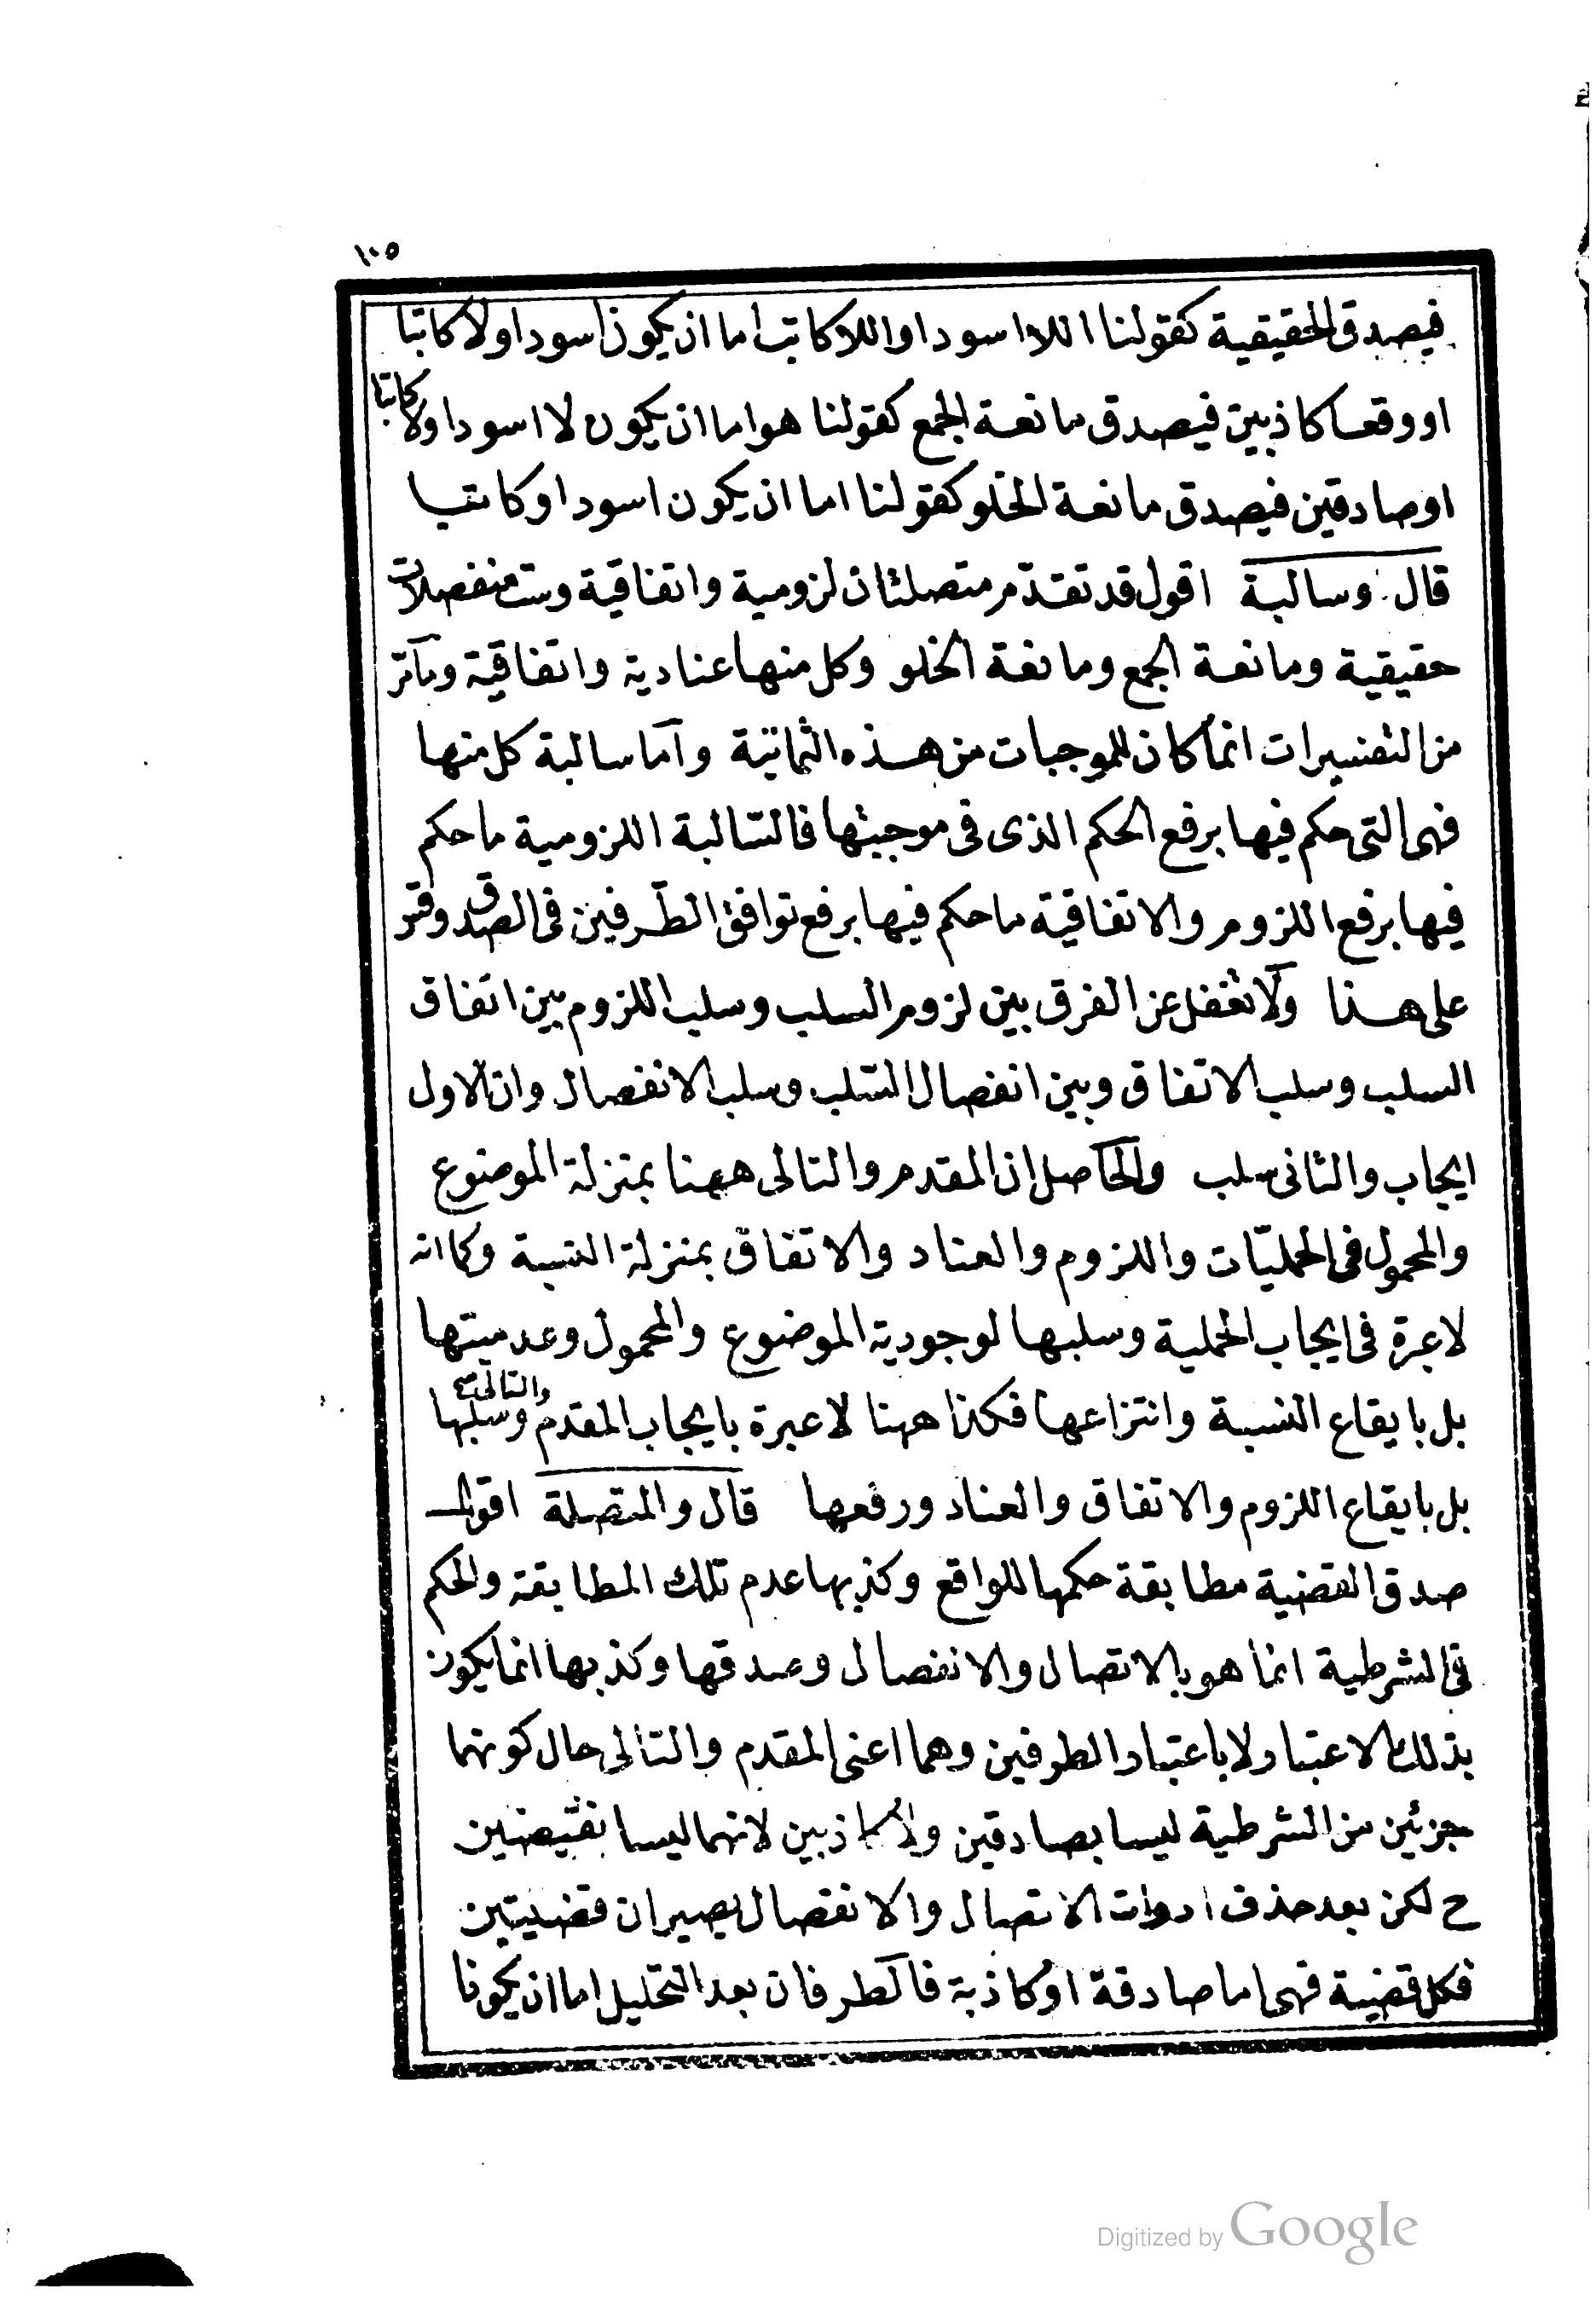 ١٠٥
فيصدق الحقيقية كقولنا اللاا سود او اللاكاتب اما ان يكون اسود او لاكاتبا
او وقعا كاذبين فيصدق مانعة الجمع كقولنا هو اما ان يكون لا اسود او لا كاتبا
او صادقين فيصدق مانعة الخلو كقولنا اما ان يكون اسود او كاتبا
قال وسالبة اقول قد تقدّم متصلتان لزومية واتفاقية وست منفصلات
حقيقية ومانعة الجمع ومانعة الخلو وكل منها عنادية واتفاقية وما مر
من التفسيرات انما كان للموجبات من هذه الثمانية وامّا سالبة كل منها
فهى التى حكم فيها برفع الحكم الذى فى موجبتها فالسّالبة اللزومية ما حكم
فيها برفع اللزوم والاتفاقية ما حكم فيها برفع توافق الطّرفين فى الصدق وقس
على هذا ولا تغفل عن الفرق بين لزوم السلب وسلب اللزوم بين اتفاق
السلب وسلب الاتفاق وبين انفصال السّلب وسلب الانفصال وان الاول
ايجاب والثانى سلب والحاصل ان المقدم والتالى ههنا بمنزلة الموضوع
والمحمول فى الحمليّات واللزوم والعناد والاتفاق بمنزلة النسبة وكما انه
لا عبرة فى ايجاب الحملية وسلبها لوجودية الموضوع والمحمول وعدميتها
بل بايقاع النسبة وانتزاعها فكذا ههنا لا عبرة بايجاب المقدم والتالى وسلبها
بل بايقاع اللزوم والاتفاق والعناد ورفعها قال والمتصلة اقول
صدق القضية مطابقة حكمها للواقع وكذبها عدم تلك المطابقة والحكم
فى الشرطية انما هو بالاتصال والانفصال وصدقها وكذبها انما يكون
بذلك الاعتبار لا باعتبار الطرفين وهما اعنى المقدم والتالى حال كونهما
جزئين من الشرطية ليسا بصادقين ولا كاذبين لانهما ليسا بقضيتين
ح لكن بعد حذف ادوات الاتصال والانفصال يصيران قضيتين
فكل قضية فهى اما صادقة او كاذبة فالطرفان بعد التحليل اما ان يكونا
Digitized by Google